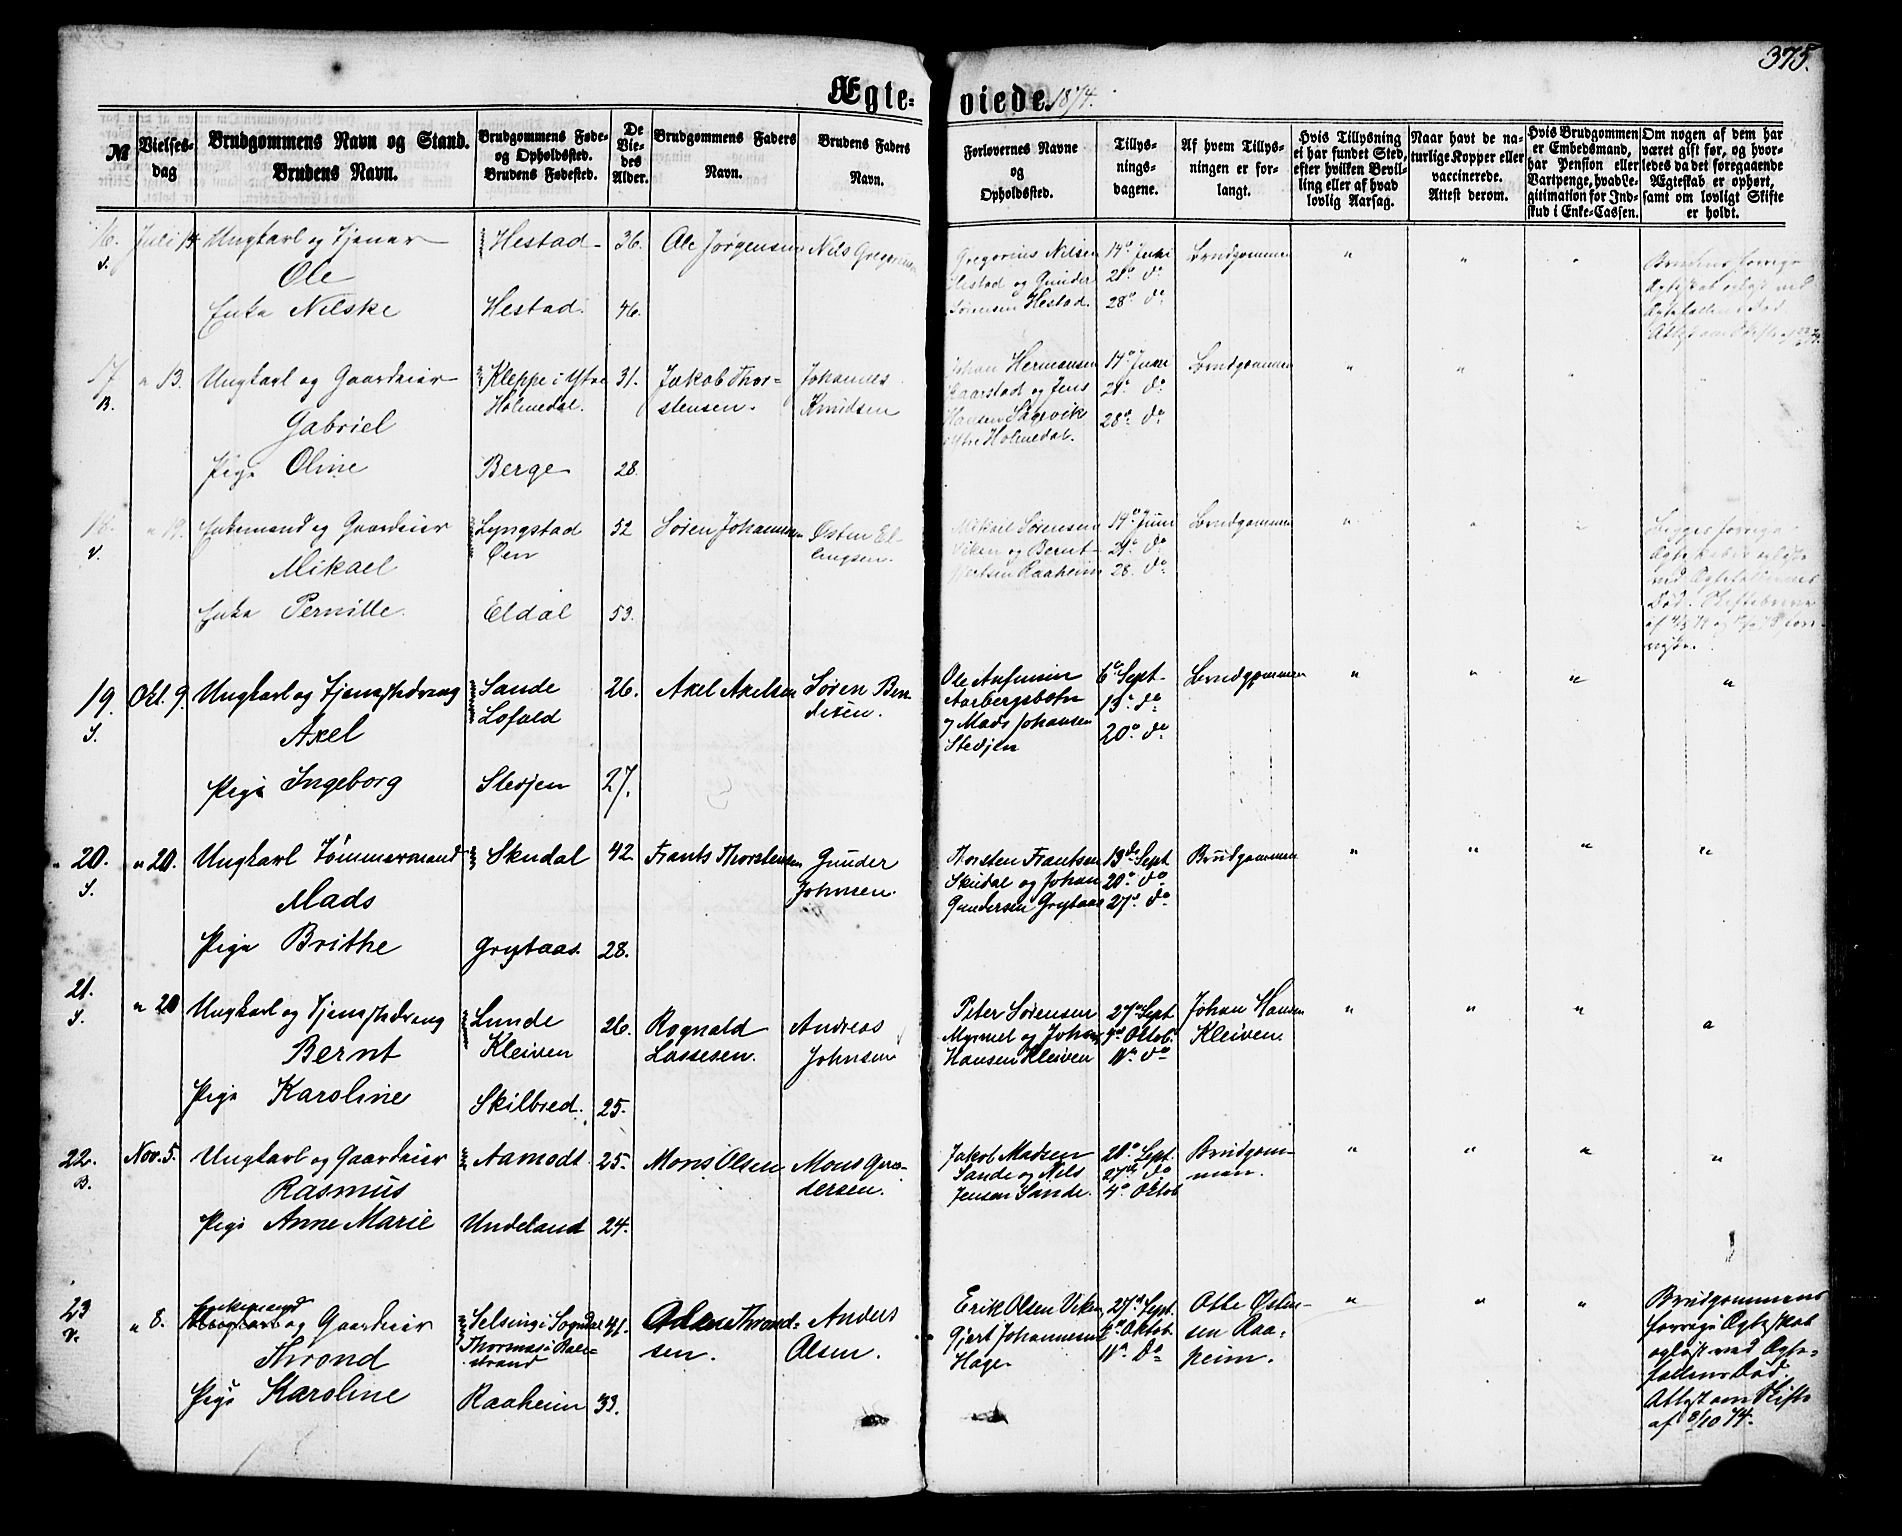 375.
Ægteviede. 1874.
№
Vielsesdag
Brudgommens Navn og Stand.
Brudens Navn.
Brudgommens Føde- og Opholdssted.
Brudens Fødested.
De Viedes Alder.
Brudgommens Faders Navn.
Brudens Faders Navn.
Forlovernes Navne og Opholdssted.
Tillysningsdagene.
Af hvem Tillysningen er forlangt.
Hvis Tillysning ei har fundet Sted, efter hvilken Bevilling eller af hvad lovlig Aarsag.
Naar havt de naturlige Kopper eller vaccinerede. Attest derom.
Hvis Brudgommen er Embedsmand, har Pension eller Vartpenge, hvad Legitimation for Indskud i Enke-Cassen.
Om nogen af dem har været gift før, og hvorledes da det foregaaende Ægteskab er ophørt, samt om lovligt Skifte er holdt.
16. Juli 14. Ungkarl og Tjener Hestad 36. Ole Jørgensen Nils Gregersen Gregorius Nilsen 14de Juni Brudgommen " " "
Ole Hestad og Gunder 21de do
Enke Nilske Hestad. 46. Sørensen Hestad. 28de do
17 B. " 13. Ungkarl og Gaardeier Kleppe i Ytre 31. Jakob Thor- Johannes Johan Hermansen 14de Juni Brudgommen " " " "
Holmedal. stensen. Knudsen Gaarstad og Jens 21de do
Gabriel Hansen Sagevik 28de do
Ytre Holmedal.
Pige Oline Berge 28.
18. V. " 19. Enkemand og Gaardeier Lyngstad 52 Søren Johannesen Østen El- Mikael Sørensen 14de Juni Brudgommen " " " Begges forrige
Øen lingsen. Viken og Bernt 21de do
Mikael Raaheim 28. do
Enke Pernille. Eldal 53.
19. S. Okt. 9. Ungkarl og Tjenestedreng Sande 26. Axel Axelsen Søren Ben- Ole Anfinnsen 6te Sept. Brudgommen " " " "
Lofald diksen. Aarbergsbotn 13de do
Axel og Mads Johansen 20de do
Stedjen
Pige Ingeborg Stedjen 27.
20. S. " 20. Ungkarl Tømmermand Skudal 42 Frants Thorstensen Gunder Thorsten Frantsen 13de Sept. Brudgommen " " " "
Johnsen. Skudal og Johan 20de do
Mads Gundersen Grytaas 27de do
Pige Brithe Grytaas. 28.
21. S. " 20 Ungkarl og Tjenestedreng Lunde 26. Rognald Andreas Peter Sørensen 27de Sept. Johan Hansen " " " "
Kleiven Lassesen. Johnsen Myrmel og Johan Oktob. Kleiven.
Bernt Hansen Kleiven 11te do
Pige Karoline Skilbred. 25.
22. B. Nov. 5. Ungkarl og Gaardeier Aamodt 25. Mons Olsen Mons Gun- Jakob Madsen 20de Sept. Brudgom- " " " "
dersen. Sande og Nils 27de do men.
Rasmus Jensen Sande. 4de Oktob
Pige Anne Marie Undeland 24.
23 V. " 8. Enkemand og Gaardeier Selseng i Sogndal 41. Thrond- Anders Erik Olsen Viken 27de Sept. Otte Østen- " " " Brudgommens
Thormes i Bale- sen. Olsen. Gjert Johannesen 4de Oktob. sen Raa- forrige Ægteskab
Thrond strand Hage 11te do heim. opløst ved Ægte-
fællens Død.
Pige Karoline Raaheim 33. Attest om Skifte
af 3/10 74.